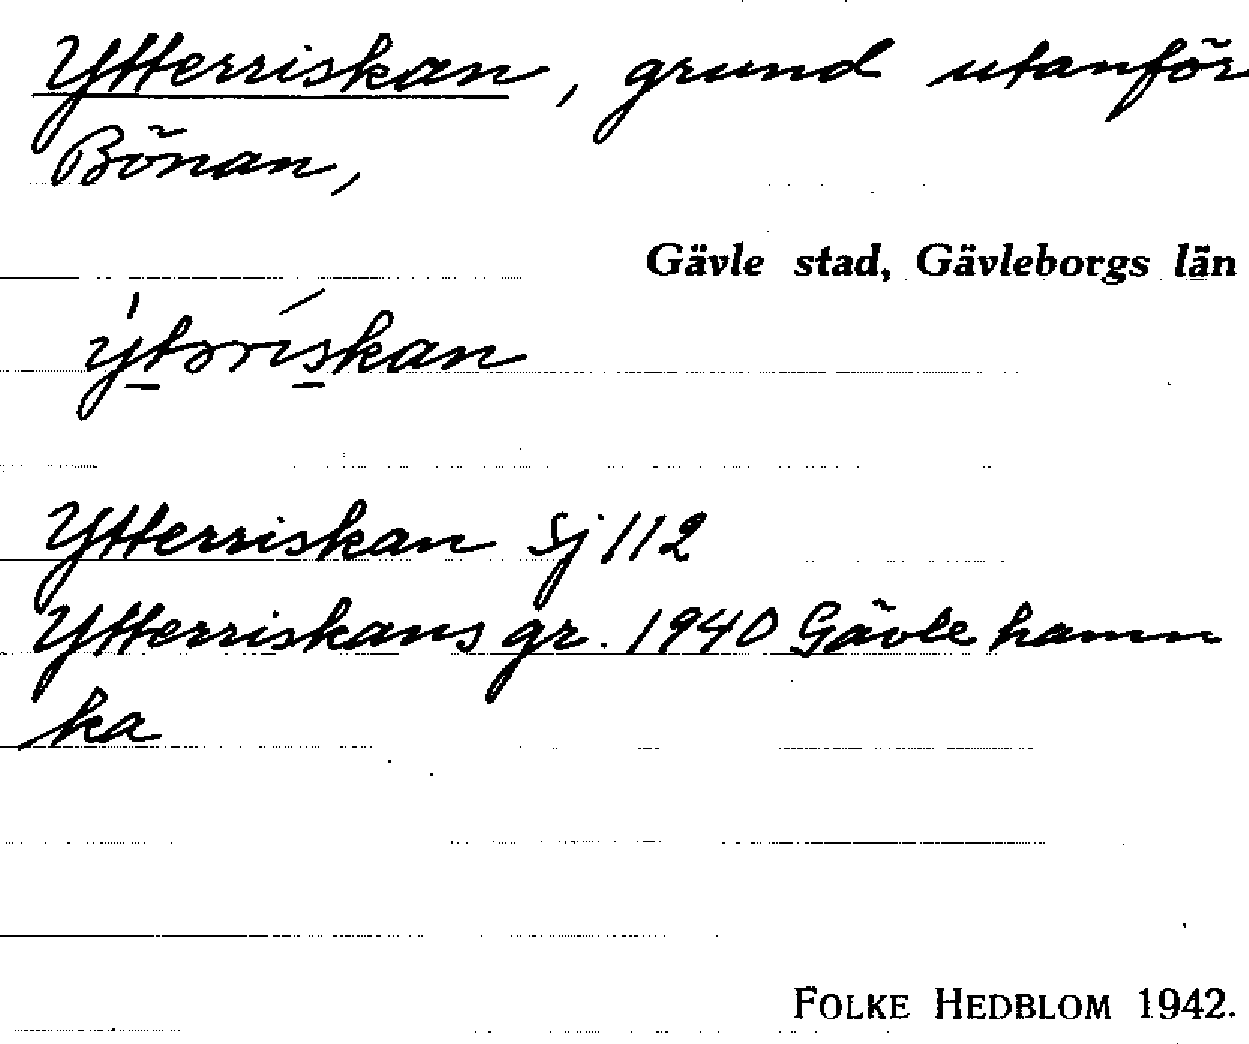 Ytterriskan, grund utanför
Bönan,
Gävle stad, Gävleborgs län
ýtərrískan
Ytterriskan Sj 112
Ytterriskans gr. 1940 Gävle hamn
ka
FOLKE HEDBLOM 1942.